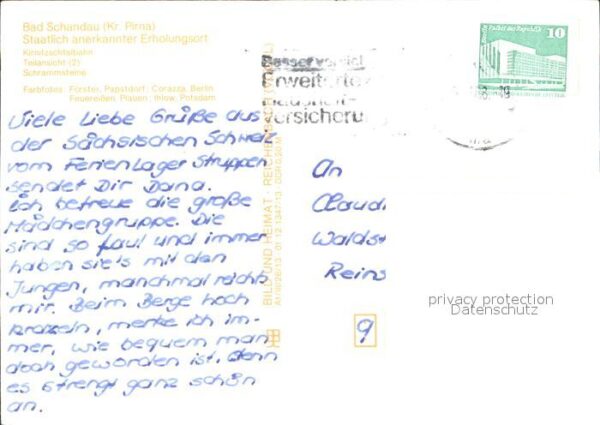 Bad Schandau (Kr. Pirna)
Staatlich anerkannter Erholungsort
Kirnitzschtalbahn
Teilansicht (2)
Schrammsteine
Farbfotos: Förster, Papstdorf; Corazza, Berlin
Feuereißen, Plauen; Ihlow, Potsdam
Viele Liebe Grüße aus
der Sächsischen Schweiz
vom Ferienlager Struppen
sendet Dir Dana.
Ich betreue die große
Mädchengruppe. Die
sind so faul und immer
haben sie's mit den
Jungen, manchmal reichts
mir. Beim Berge hoch
kraxeln, merke ich im-
mer, wie bequem man
doch geworden ist, denn
es strengt ganz schön
an.
BILD UND HEIMAT · REICHENBACH
Besser
Erweiterte
versicherung
10
An
Claudi
Waldst
Reins
9
privacy protection
Datenschutz